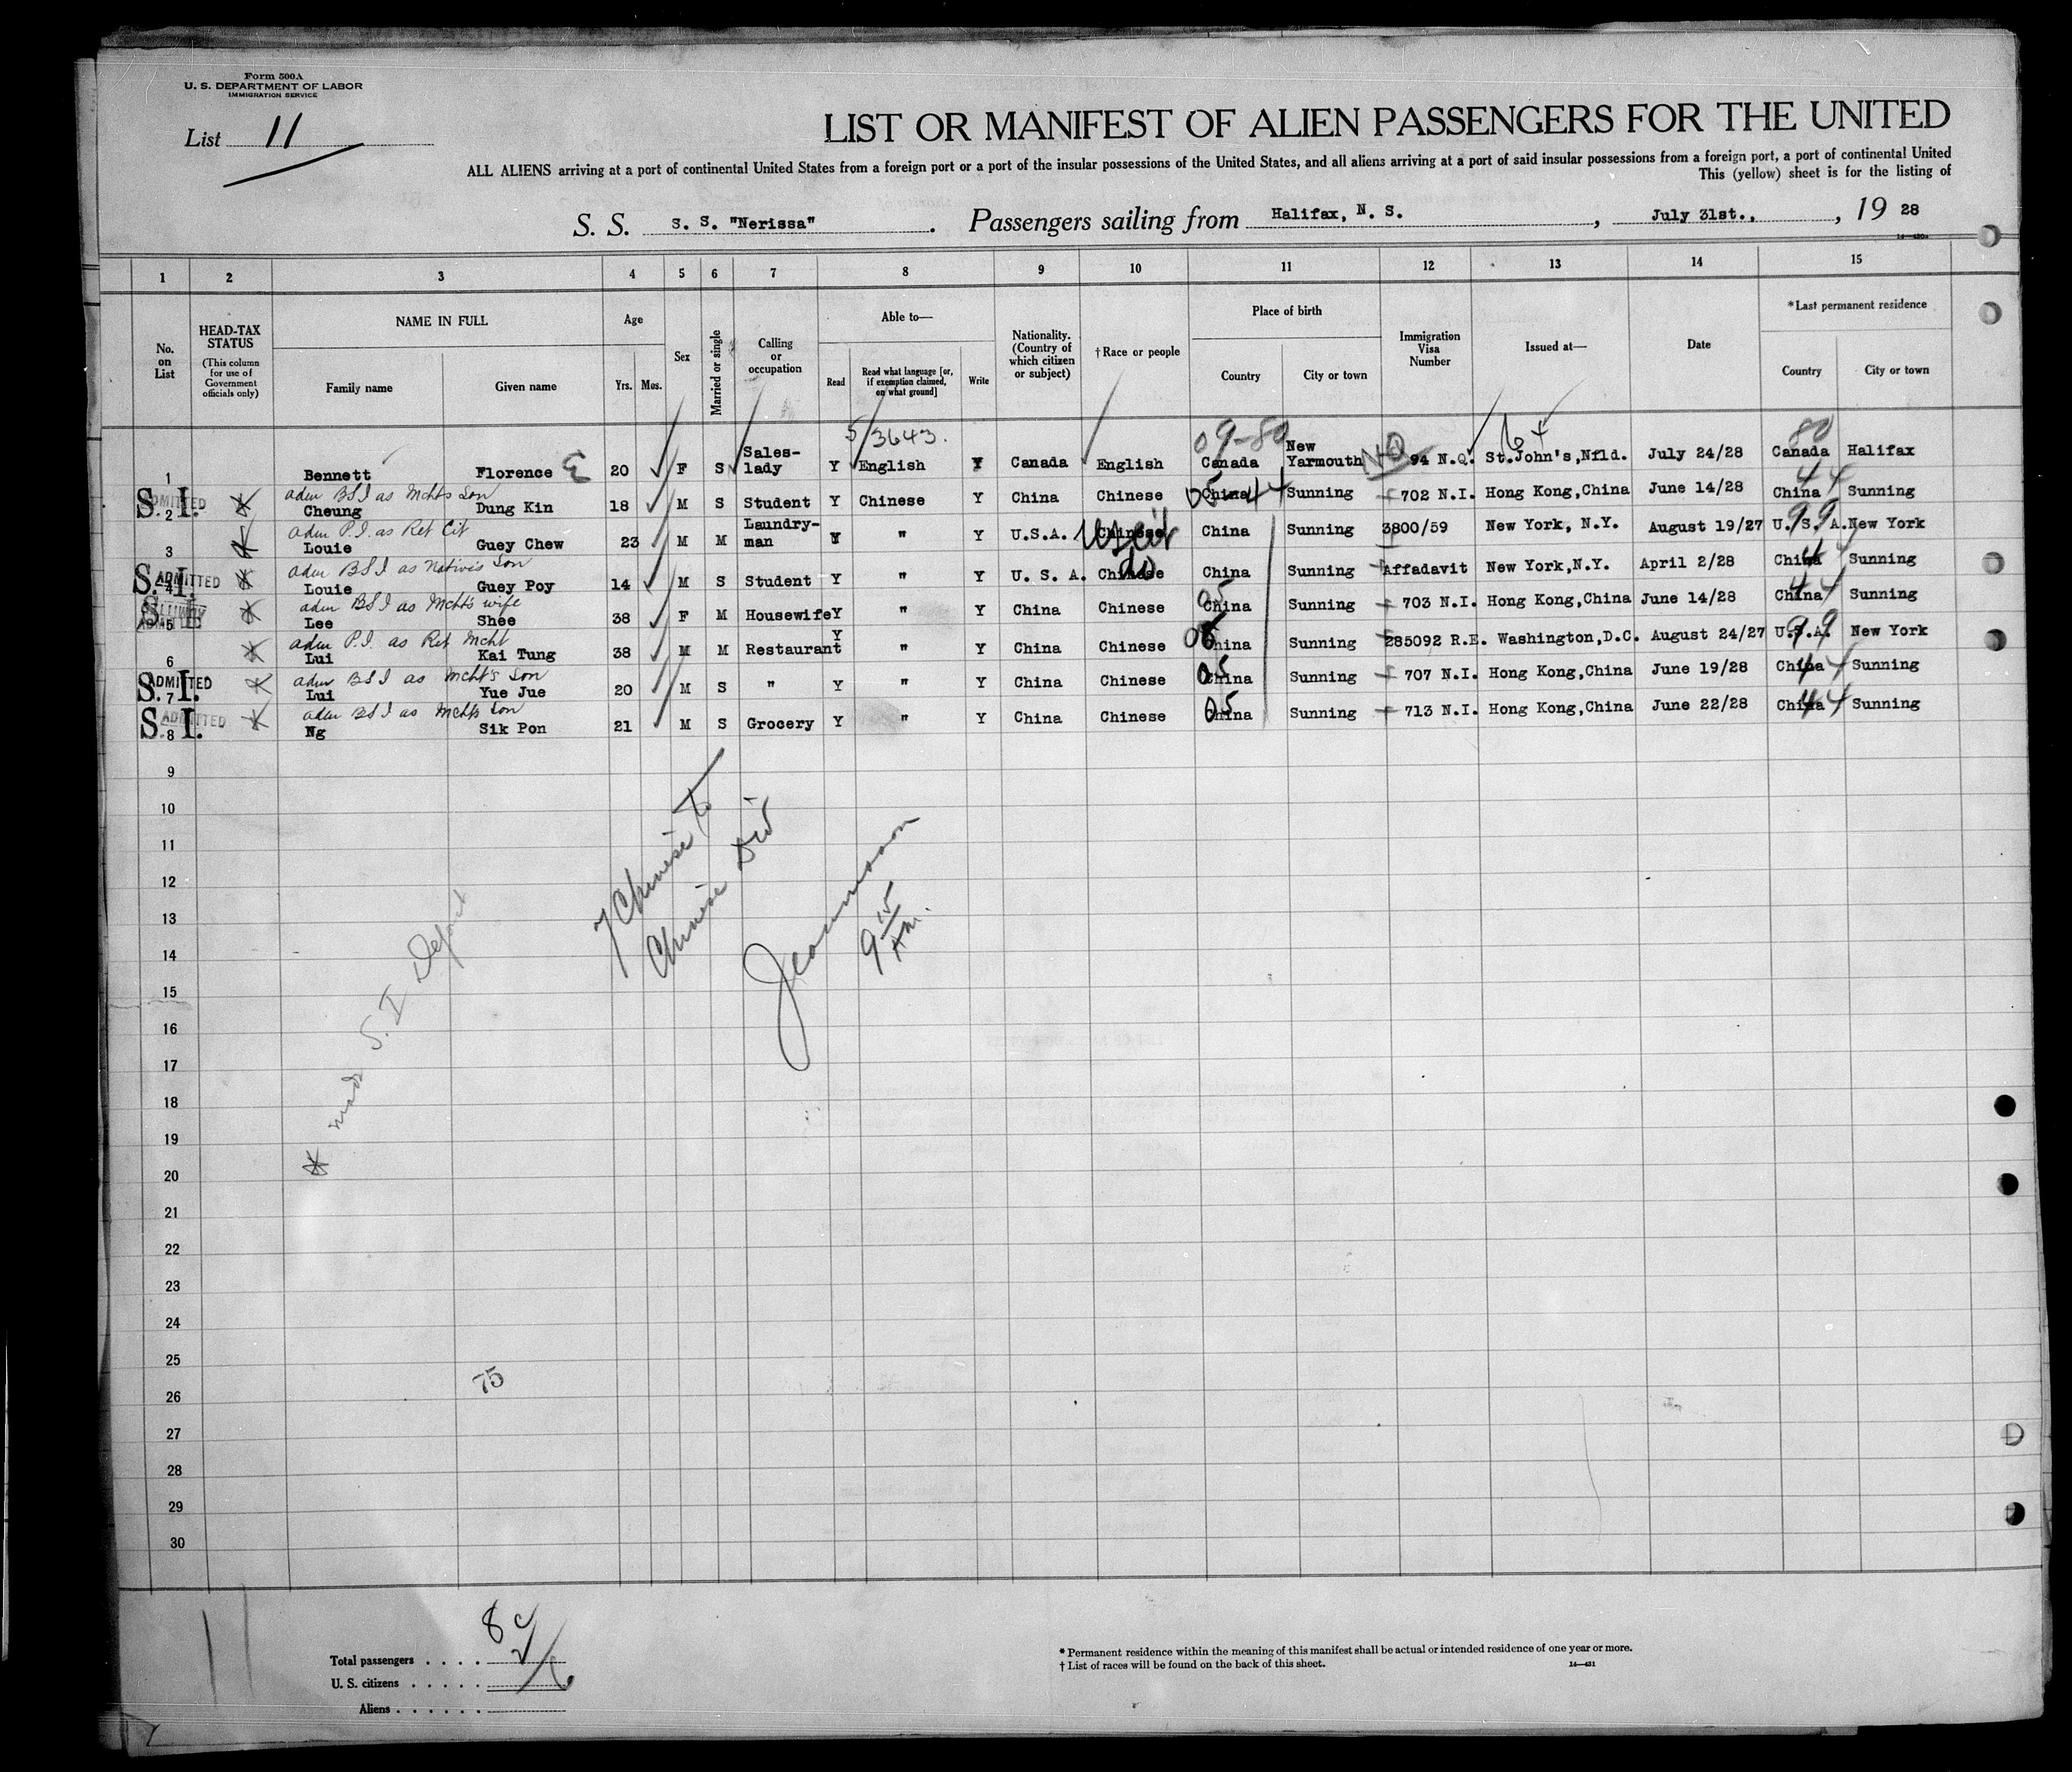 Form 500A
U. S. DEPARTMENT OF LABOR
IMMIGRATION SERVICE
List 11
LIST OR MANIFEST OF ALIEN PASSENGERS FOR THE UNITED
ALL ALIENS arriving at a port of continental United States from a foreign port or a port of the insular possessions of the United States, and all aliens arriving at a port of said insular possessions from a foreign port, a port of continental United
This (yellow) sheet is for the listing of
S. S. S. S. "Nerissa". Passengers sailing from Halifax, N. S., July 31st., , 19 28
1 2 3 4 5 6 7 8 9 10 11 12 13 14 15
No. on List
HEAD-TAX STATUS
(This column for use of Government officials only)
NAME IN FULL
Family name Given name
Age
Yrs. Mos.
Sex
Married or single
Calling or occupation
Able to—
Read
Read what language [or, if exemption claimed, on what ground]
Write
Nationality. (Country of which citizen or subject)
†Race or people
Place of birth
Country City or town
Immigration Visa Number
Issued at—
Date
*Last permanent residence
Country City or town
5/3643. 09-80 80
1 Bennett Florence 20 F S Sales-lady Y English Y Canada English Canada New Yarmouth NQ 94 N.Q. St.John's,Nfld. July 24/28 Canada Halifax
adm BSI as Mchts Son
S. I. ADMITTED 2 Cheung Dung Kin 18 M S Student Y Chinese Y China Chinese 05 China 44 Sunning 702 N.I. Hong Kong,China June 14/28 China 44 Sunning
adm P.I. as Ret Cit
3 Louie Guey Chew 23 M M Laundry-man Y " Y U.S.A. Chinese US Cit China Sunning 3800/59 New York, N.Y. August 19/27 U.S.A. 99 New York
adm BSI as Native's Son
S. I. ADMITTED 4 Louie Guey Poy 14 M S Student Y " Y U. S. A. Chinese do China Sunning Affadavit New York,N.Y. April 2/28 China 44 Sunning
adm BSI as Mcht's wife
S. I. ADMITTED 5 Lee Shee 38 F M Housewife Y " Y China Chinese 05 China Sunning 703 N.I. Hong Kong,China June 14/28 China 44 Sunning
adm P.I. as Ret Mcht
6 Lui Kai Tung 38 M M Restaurant Y " Y China Chinese 05 China Sunning 285092 R.E. Washington,D.C. August 24/27 U.S.A. 99 New York
adm BSI as Mcht's Son
S. I. ADMITTED 7 Lui Yue Jue 20 M S " Y " Y China Chinese 05 China Sunning 707 N.I. Hong Kong,China June 19/28 China 44 Sunning
adm BSI as Mchts Son
S. I. ADMITTED 8 Ng Sik Pon 21 M S Grocery Y " Y China Chinese 05 China Sunning 713 N.I. Hong Kong,China June 22/28 China 44 Sunning
9
10
11
12
13
14
15
16
17
18
19
20
21
22
23
24
25
26
27
28
29
30
7 Chinese to
Chinese Div
9 15 AM.
S. I
75
8
Total passengers
U. S. citizens
Aliens
* Permanent residence within the meaning of this manifest shall be actual or intended residence of one year or more.
† List of races will be found on the back of this sheet.
14—431